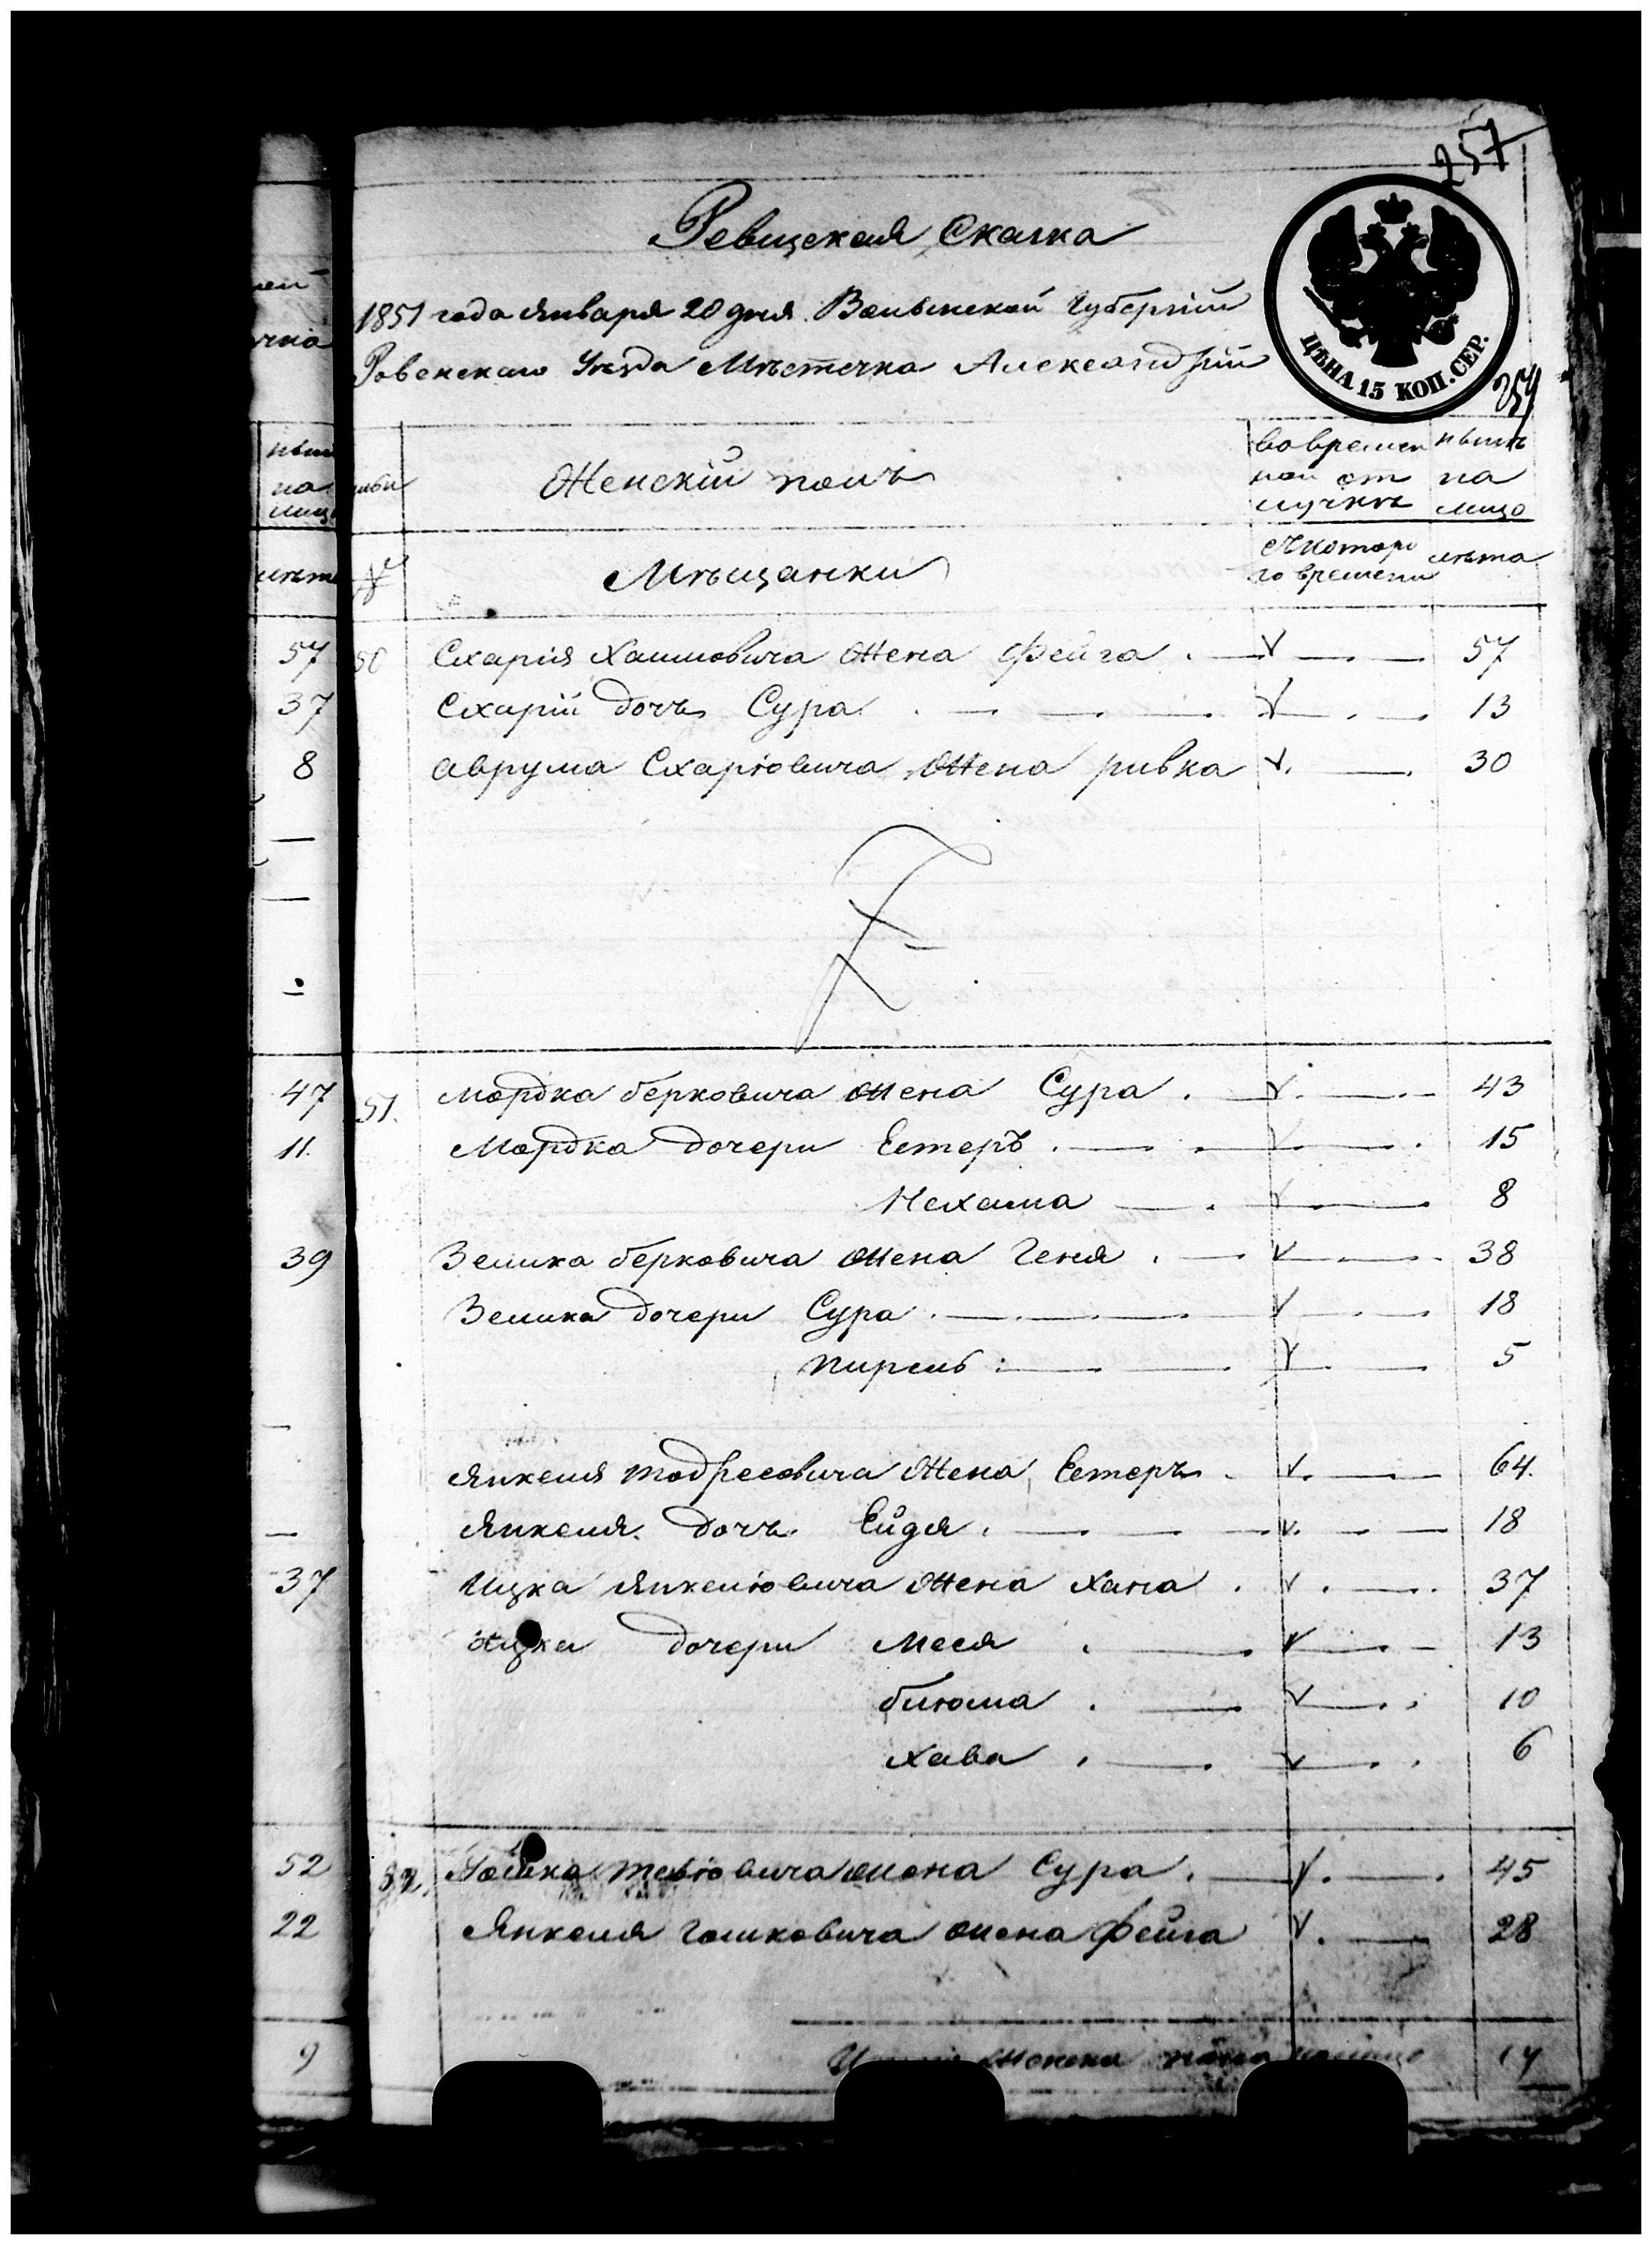 257
Ревизская Сказка
1851 года января 20 дня Волынской Губернии
Ровенскаго Уезда Мѣстечка Александрии
ЦѢНА 15 КОП. СЕР.
254
Женскій полъ
во времен ной от лучкѣ
нынѣ на лицо
№
Мѣщанки
съ котора го времени
лѣта
57 50 Схарія Хаимовича жена Фейга 57
37 Схарій дочь Сура 13
8 Аврума Схаріовича жена ривка 30
47 51. Мордка берковича жена Сура 43
11. Мордка дочери Естеръ 15
Нехама 8
39 Зелика берковича жена Геня 38
Зелика дочери Сура 18
пирель 5
Янкеля тодресовича жена Естеръ 64.
Янкеля дочь Ейдя 18
37 Ицка Янкеліовича жена Хана 37
Ицка дочери Меся 13
блюма 10
Хава 6
52 52. Гошка тевіовича жена Сура 45
22 Янкеля гошковича жена фейга 28
9 женска пола налицо 17